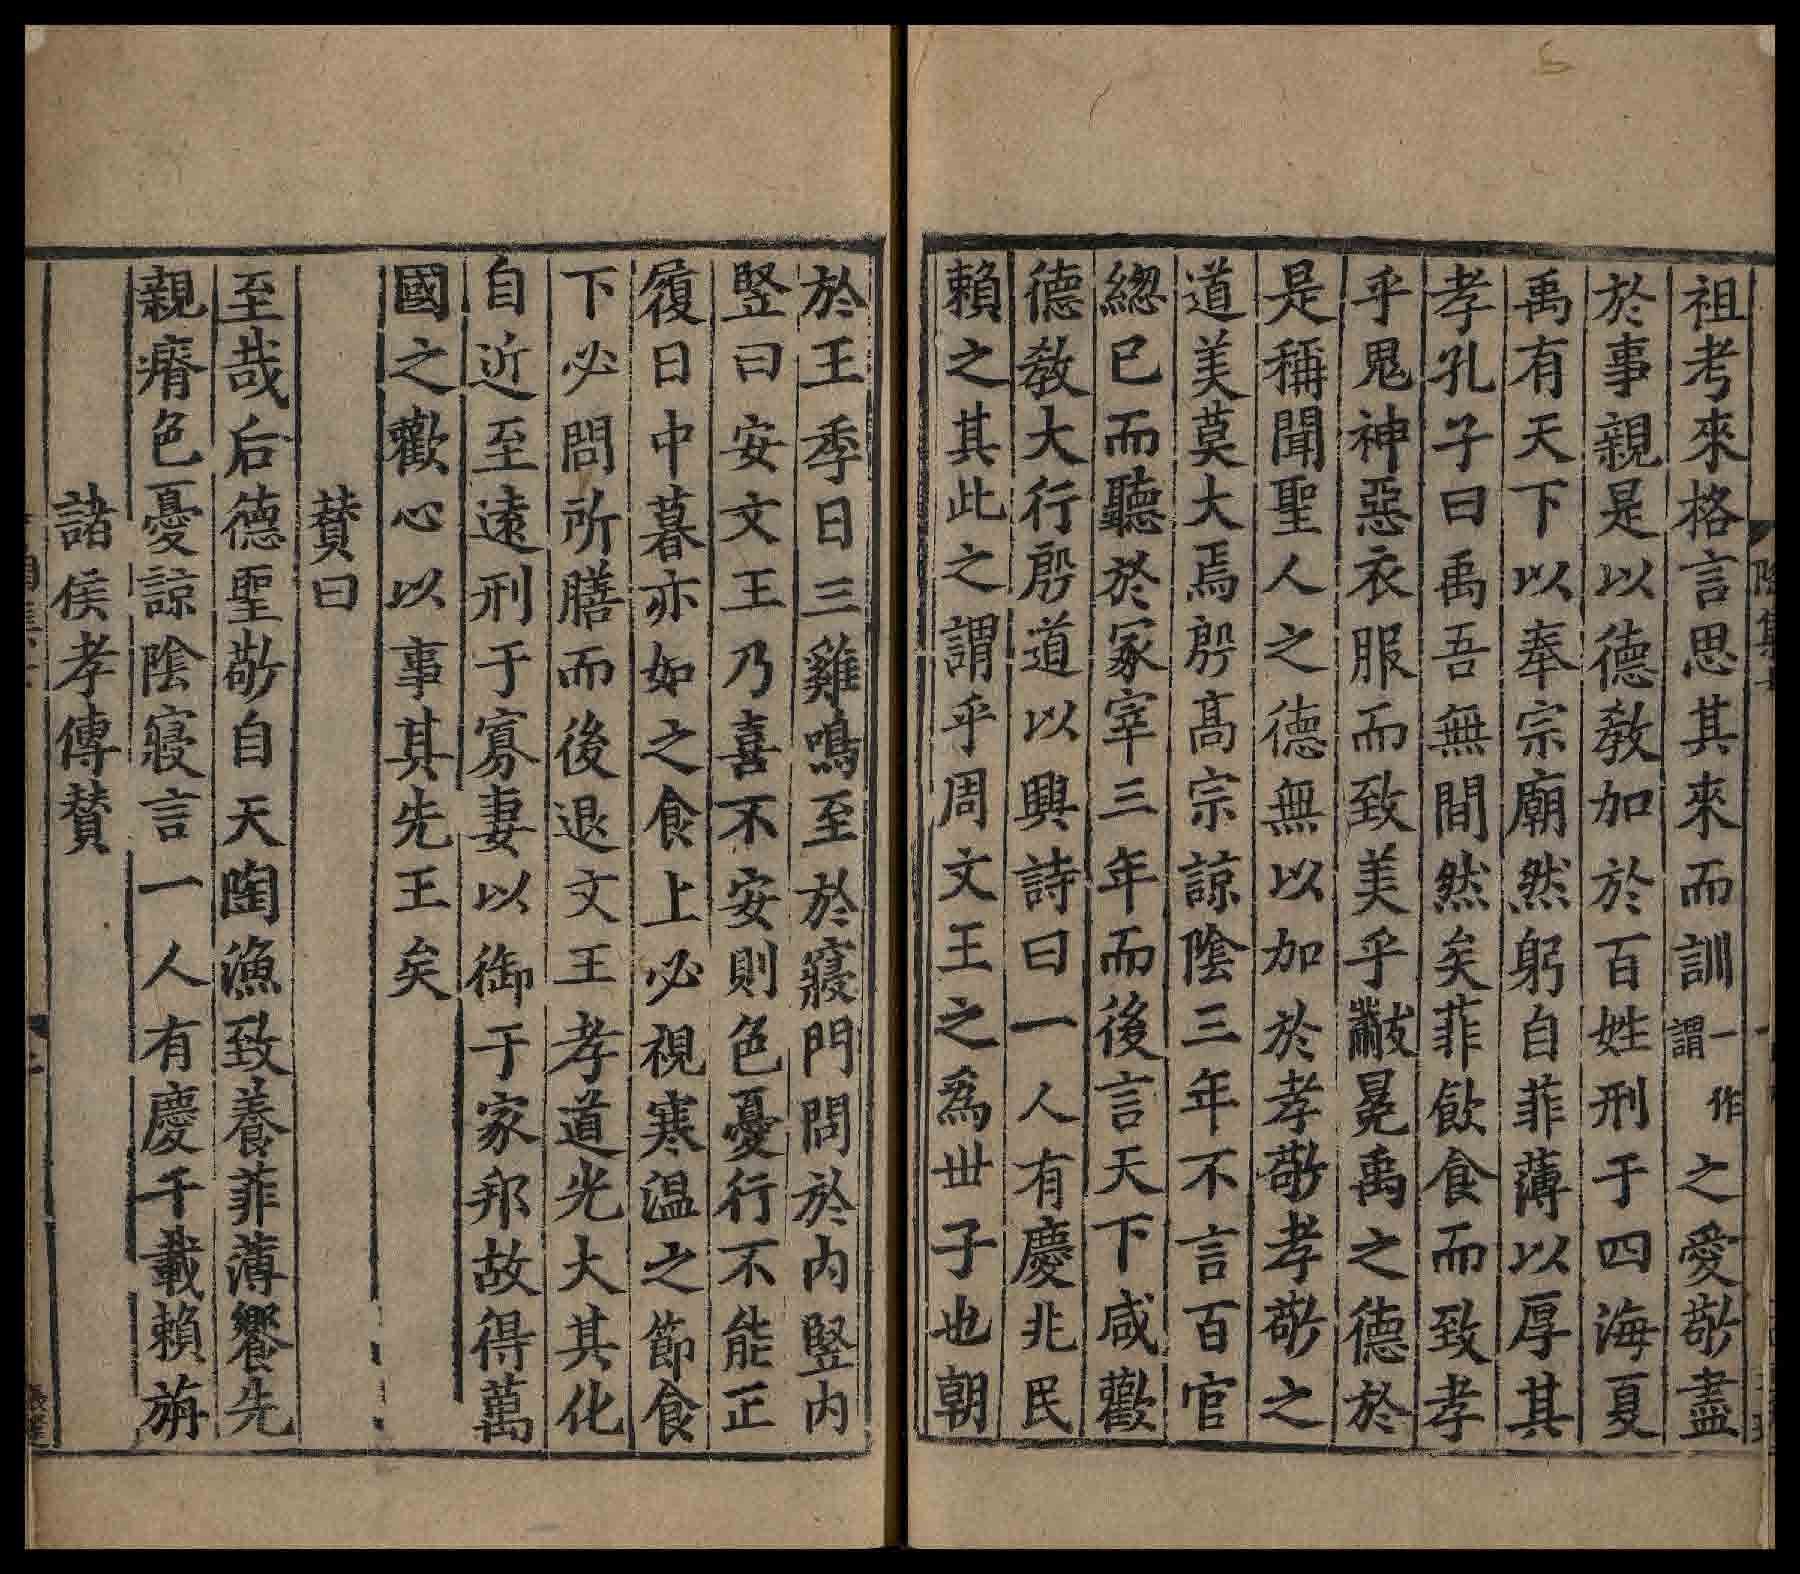 祖考來格言思其來而訓一作謂之愛敬盡
於事親是以德教加於百姓刑于四海夏
禹有天下以奉宗廟然躬自菲薄以厚其
孝孔子曰禹吾無間然矣菲飲食而致孝
乎鬼神惡衣服而致美乎黻冕禹之德於
是稱聞聖人之德無以加於孝敬孝敬之
道美莫大焉殷高宗諒陰三年不言百官
緫已而聽於冢宰三年而後言天下咸歡
德教大行殷道以興詩曰一人有慶兆民
賴之其此之謂乎周文王之為世子也朝
於王季日三雞鳴至於寢門問於內豎內
豎曰安文王乃喜不安則色憂行不能正
履日中暮亦如之食上必視寒温之節食
下必問所膳而後退文王孝道光大其化
自近至遠刑于寡妻以御于家邦故得萬
國之歡心以事其先王矣
賛曰
至哉后德聖敬自天陶漁致養菲薄饗先
親瘠色憂諒陰寢言一人有慶千載賴旃
諸侯孝傳賛